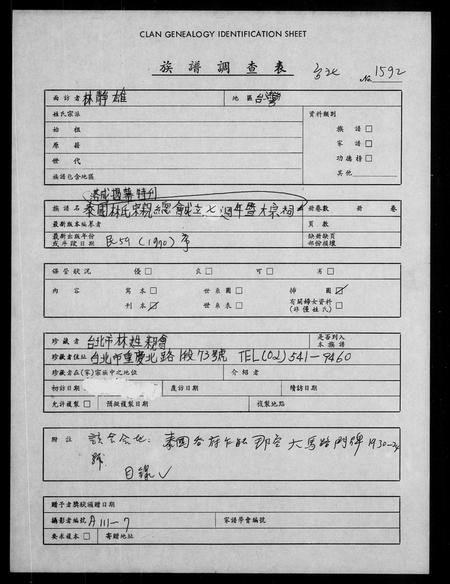 CLAN GENEALOGY IDENTIFICATION SHEET
族譜調查表
No 1592
面訪者 林靜雄 地區 台灣
姓氏宗派 資料類別
始祖 族譜□
原籍 家譜□
世代 功德榜□
族譜包含地區 其他
落成揭幕特刊
族譜名 泰國林氏宗親總會成立七週年暨大宗祠 冊卷數 卷
最新版本編纂者 頁數
最新出版年份或手段日期 民59 (1970) 序 缺冊缺頁部份損壞
保管狀況 優□ 良□ 可□ 劣□
內容 寫本□ 世系圖□ 挿圖☑
刊本☑ 世系表□ 有關婦女資料(非僅姓氏)□
珍藏者 台北市林姓宗親會 是否列入本族譜
珍藏者住址 台北市重慶北路1段73號 TEL(02)541-9460
珍藏者在(家)宗族中之地位 介紹者
初訪日期 度訪日期 續訪日期
允許複製□ 預擬複製日期 複製地點
附註 該會會址: 泰國 大馬路門牌1930-34
號
目錄✓
贈予者獎狀頒贈日期
攝影者編號 A111-7 家譜學會編號
要求複本□ 寄贈地址